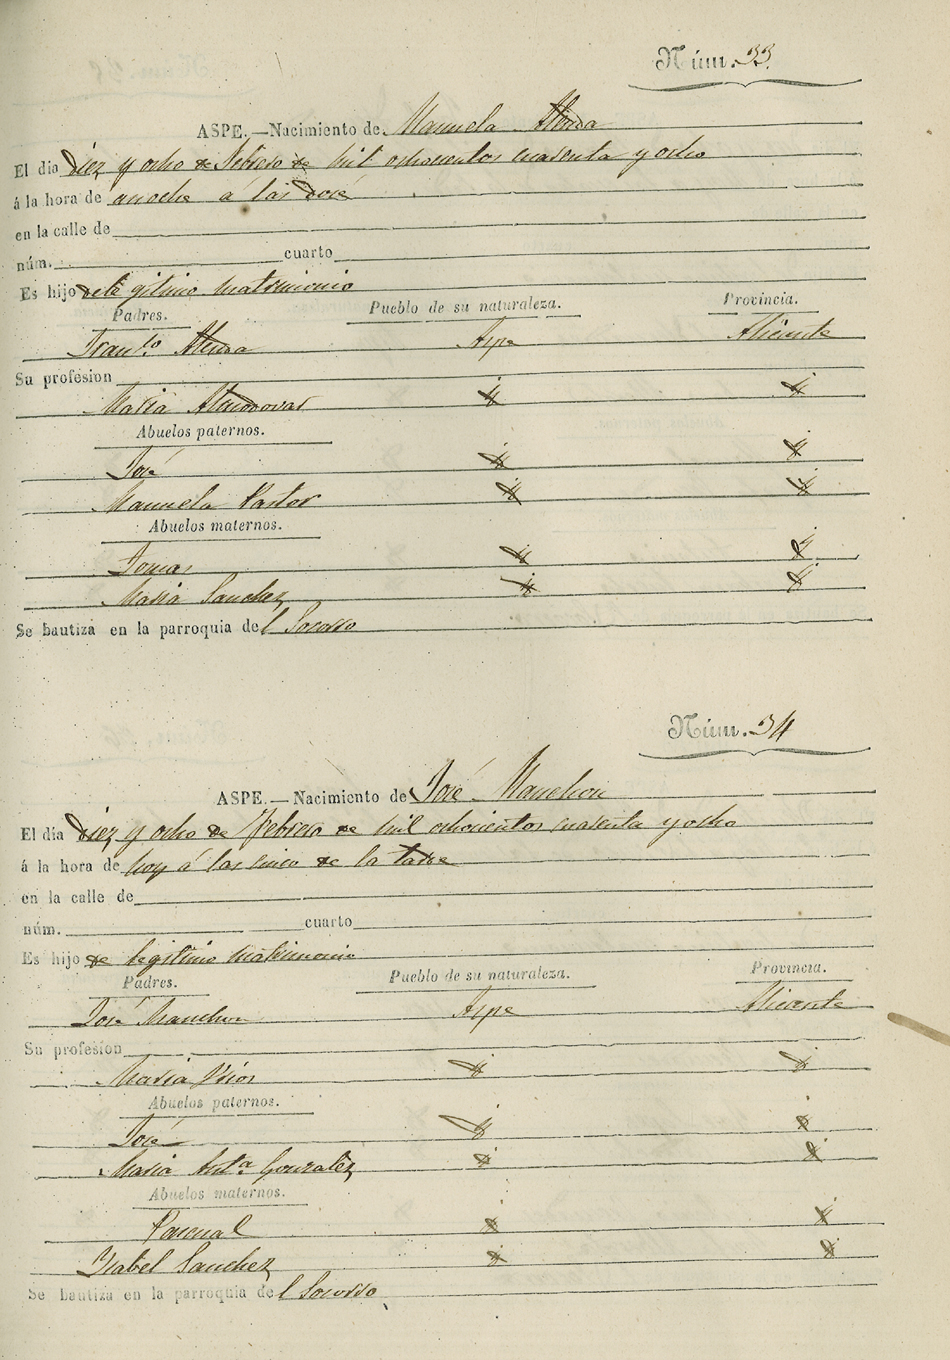 Núm. 33.
ASPE.—Nacimiento de Manuela
El dia diez y ocho de Febrero de mil ochocientos cuarenta y ocho
á la hora de anoche á las doce
en la calle de
núm. cuarto
Es hijo de legitimo matrimonio
Padres. Pueblo de su naturaleza. Provincia.
Franco. Aspe Alicante
Su profesion
Maria Almodovar
Abuelos paternos.
José
Manuela Pastor
Abuelos maternos.
Tomas
Maria Sanchez
Se bautiza en la parroquia del Socorro
Núm. 34
ASPE.—Nacimiento de José Manchon
El dia diez y ocho de Febrero de mil ochocientos cuarenta y ocho
á la hora de hoy á las cinco de la tarde
en la calle de
núm. cuarto
Es hijo de legitimo matrimonio
Padres. Pueblo de su naturaleza. Provincia.
José Manchon Aspe Alicante
Su profesion
Maria Prior
Abuelos paternos.
José
Maria Anta. Gonzalez
Abuelos maternos.
Pascual
Isabel Sanchez
Se bautiza en la parroquia del Socorro